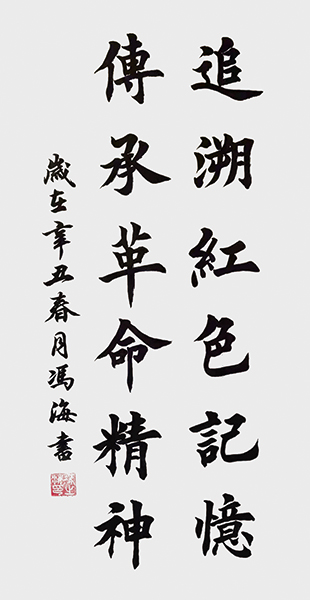 追溯紅色記憶
傳承革命精神
歲在辛丑春月馮海書